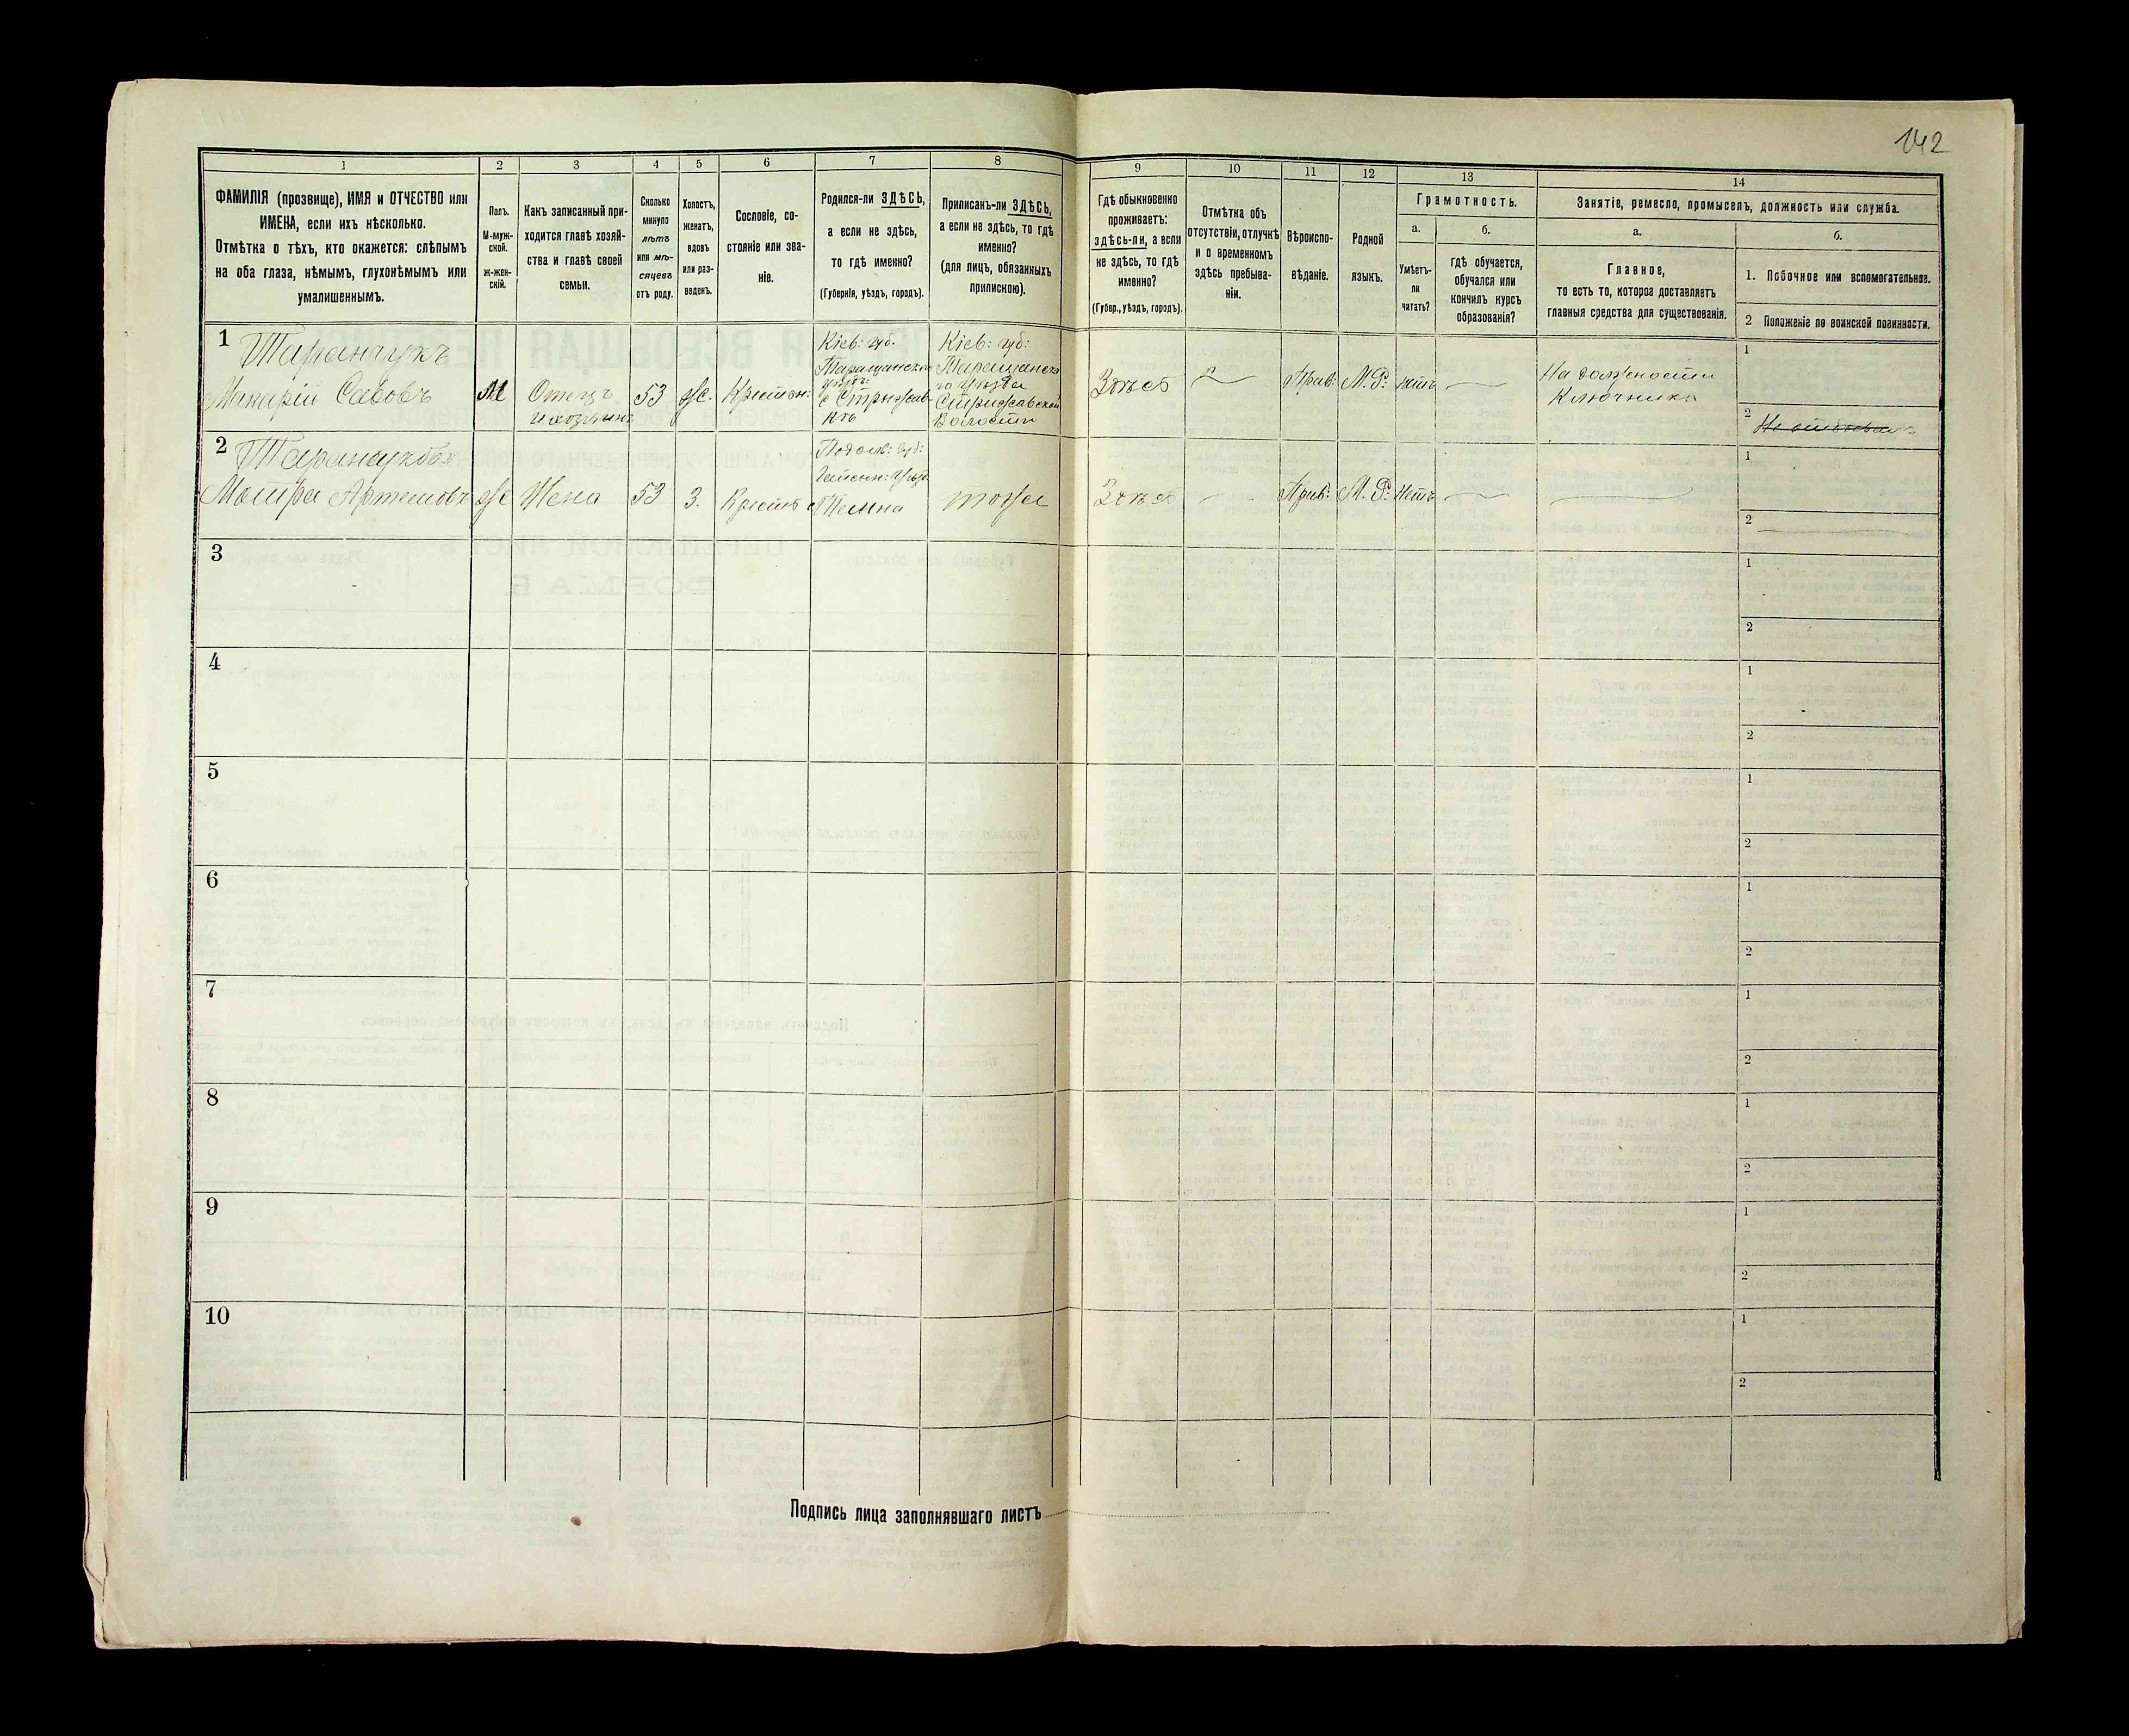 142
1 2 3 4 5 6 7 8 9 10 11 12 13 14
ФАМИЛІЯ (прозвище), ИМЯ и ОТЧЕСТВО или
ИМЕНА, если ихъ нѣсколько.
Отмѣтка о тѣхъ, кто окажется: слѣпымъ
на оба глаза, нѣмымъ, глухонѣмымъ или
умалишеннымъ.
Полъ.
М-муж-
ской.
ж-жен-
скій.
Какъ записанный при-
ходится главѣ хозяй-
ства и главѣ своей
семьи.
Сколько
минуло
лѣтъ
или мѣ-
сяцевъ
отъ роду.
Холостъ,
женатъ,
вдовъ
или раз-
веденъ.
Сословіе, со-
стояніе или зва-
ніе.
Родился-ли ЗДѢСЬ,
а если не здѣсь,
то гдѣ именно?
(Губернія, уѣздъ, городъ).
Приписанъ-ли ЗДѢСЬ,
а если не здѣсь, то гдѣ
именно?
(для лицъ, обязанныхъ
припискою).
Гдѣ обыкновенно
проживаетъ:
здѣсь-ли, а если
не здѣсь, то гдѣ
именно?
(Губер., уѣздъ, городъ).
Отмѣтка объ
отсутствіи, отлучкѣ
и о временномъ
здѣсь пребыва-
ніи.
Вѣроиспо-
вѣданіе.
Родной
языкъ.
Грамотность.
а.
Умѣетъ-
ли
читать?
б.
гдѣ обучается,
обучался или
кончилъ курсъ
образованія?
Занятіе, ремесло, промыселъ, должность или служба.
а.
Главное,
то есть то, которое доставляетъ
главныя средства для существованія.
б.
1. Побочное или вспомогательное.
2 Положеніе по воинской повинности.
1
Таранчукъ
Макарій Савовъ
М
Отецъ
и хозяинъ
53
ж.
Крестьян:
Кіев: губ.
Таращанск
уѣздъ:
с Стрижав-
къ
Кіев: губ:
Таращанска
го уѣзда
Стрижавской
Волости
Здѣсь
Прав:
М. Р:
нѣтъ
На должности
Ключника
1
2
2
Таранчукова
Мотря Артемовъ
ж
Жена
53
З.
Крест
Подол: губ:
Гайсин: уѣзд.
тоже
Здѣсь
Прав:
М. Р:
Нѣтъ
1
2
3
1
2
4
1
2
5
1
2
6
1
2
7
1
2
8
1
2
9
1
2
10
1
2
Подпись лица заполнявшаго листъ